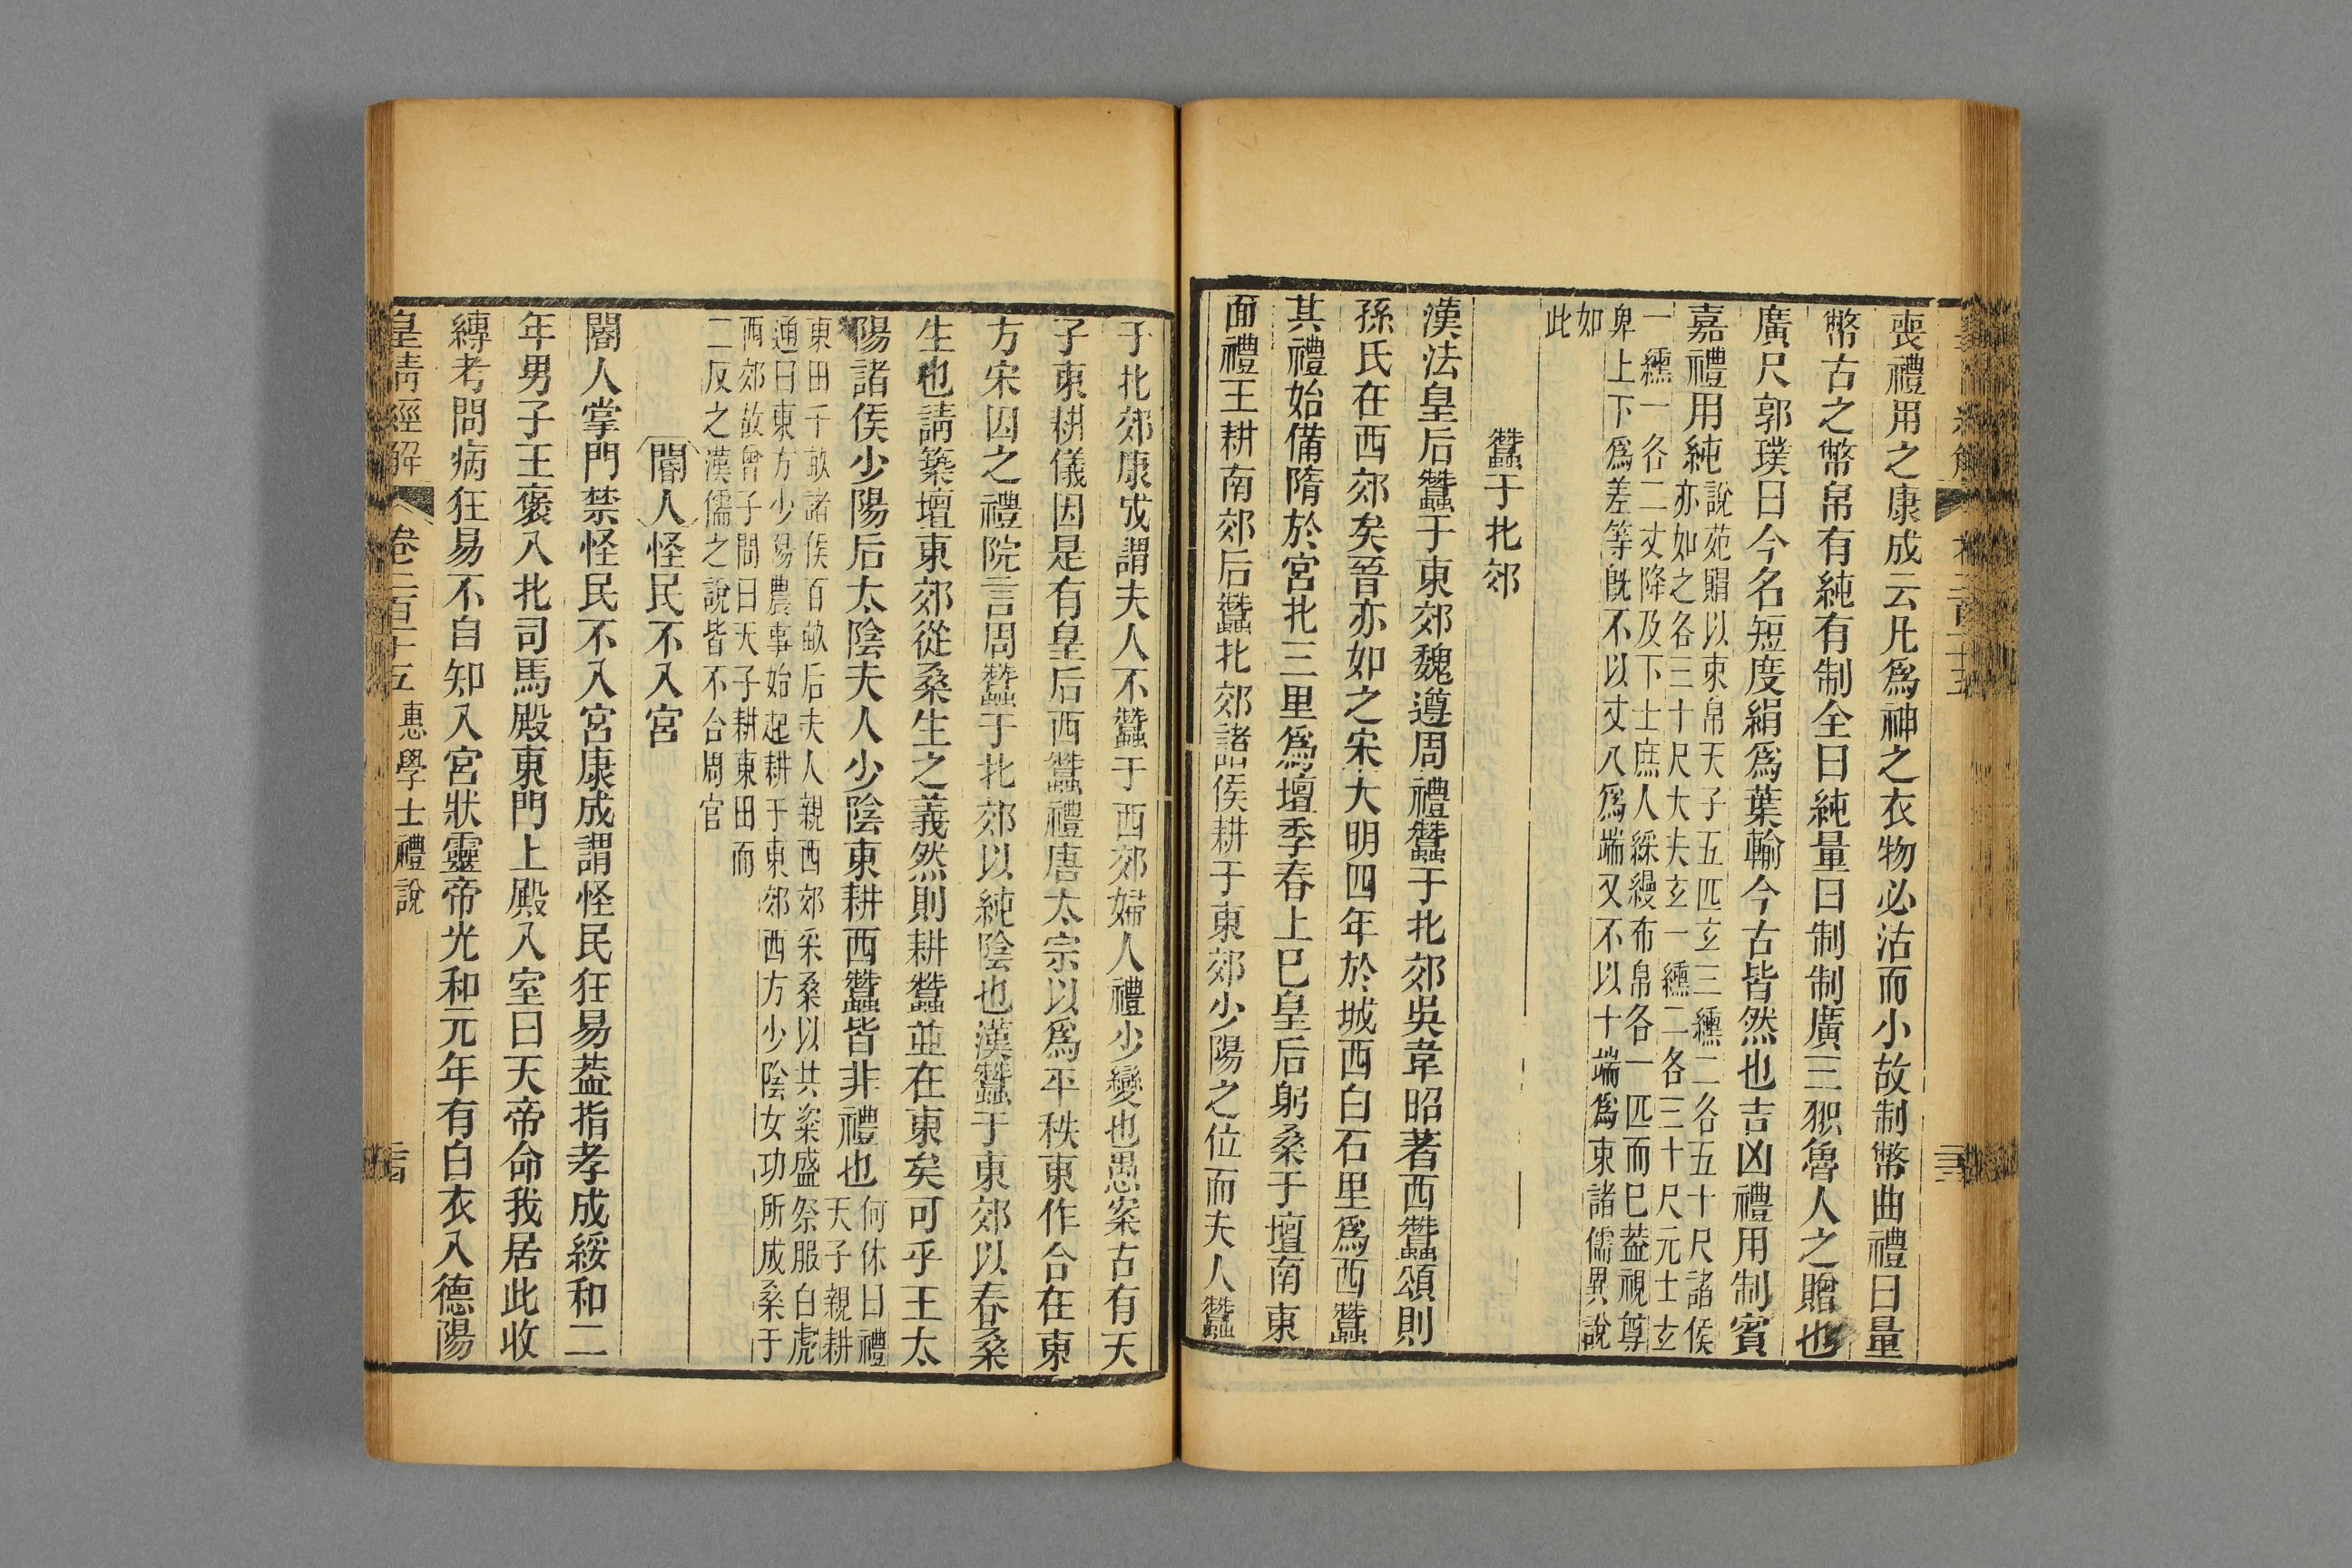 喪禮用之康成云凡爲神之衣物必沽而小故制幣曲禮曰量
幣古之幣帛有純有制全曰純量曰制制廣三㣈魯人之贈也
廣尺郭璞曰今名短度絹爲葉輸今古皆然也吉凶禮用制賓
嘉禮用純說苑賵以束帛天子五匹玄三纁二各五十尺諸侯
亦如之各三十尺大夫玄一纁二各三十尺元士玄
一纁一各二丈降及下士庶人綵縵布帛各一匹而巳葢視尊
卑上下爲差等旣不以丈八爲端又不以十端爲束諸儒異說
如
此
蠶于北郊
漢法皇后蠶于東郊魏遵周禮蠶于北郊吳韋昭著西蠶頌則
孫氏在西郊矣晉亦如之宋大明四年於城西白石里爲西蠶
其禮始備隋於宮北三里爲壇季春上巳皇后躬桑于壇南東
面禮王耕南郊后蠶北郊諸侯耕于東郊少陽之位而夫人蠶
于北郊康成謂夫人不蠶于西郊婦人禮少變也愚案古有天
子東耕儀因是有皇后西蠶禮唐太宗以爲平秩東作合在東
方宋因之禮院言周蠶于北郊以純陰也漢蠶于東郊以春桑
生也請築壇東郊從桑生之義然則耕蠶並在東矣可乎王太
陽諸侯少陽后太陰夫人少陰東耕西蠶皆非禮也何休曰禮
天子親耕
東田千畝諸侯百畝后夫人親西郊采桑以共粢盛祭服白虎
通曰東方少陽農事始起耕于東郊西方少陰女功所成桑于
西郊故曾子問曰天子耕東田而
二反之漢儒之說皆不合周官
閽人怪民不入宮
閽人掌門禁怪民不入宮康成謂怪民狂易葢指孝成綏和二
年男子王褒入北司馬殿東門上殿入室曰天帝命我居此收
縛考問病狂易不自知入宮狀靈帝光和元年有白衣入德陽
皇清經解 卷二百十五 惠學士禮說